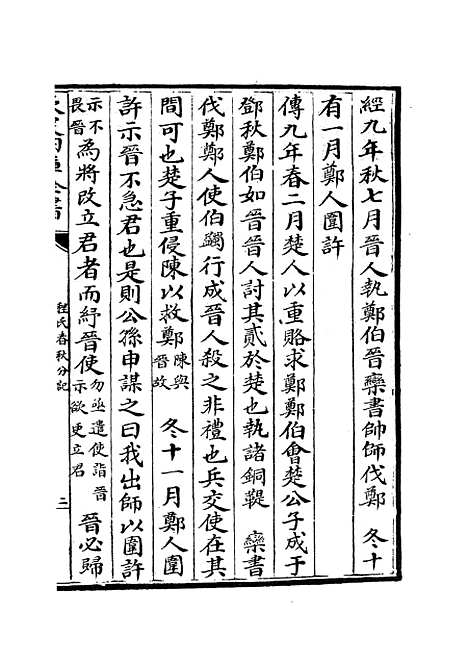 經九年秋七月晉人執鄭伯晉欒書帥師伐鄭　冬十
有一月鄭人圍許
傳九年春二月楚人以重賂求鄭鄭伯會楚公子成于
鄧秋鄭伯如晉晉人討其貳於楚也執諸銅鞮　欒書
伐鄭鄭人使伯蠲行成晉人殺之非禮也兵交使在其
間可也楚子重侵陳以救鄭陳與晉故　冬十一月鄭人圍
許示晉不急君也是則公孫申謀之曰我出師以圍許
示不畏晉為將改立君者而紓晉使勿亟遣使詣晉示欲更立君　晉必歸
程氏春秋分記
二